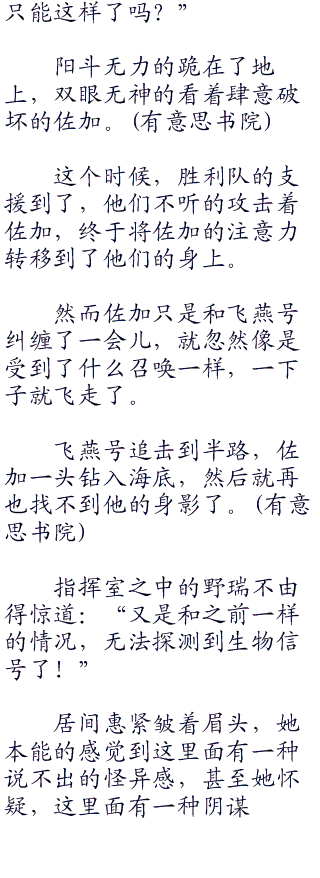 只能这样了吗？”
阳斗无力的跪在了地
上，双眼无神的看着肆意破
坏的佐加。(有意思书院)
这个时候，胜利队的支
援到了，他们不听的攻击着
佐加，终于将佐加的注意力
转移到了他们的身上。
然而佐加只是和飞燕号
纠缠了一会儿，就忽然像是
受到了什么召唤一样，一下
子就飞走了。
飞燕号追击到半路，佐
加一头钻入海底，然后就再
也找不到他的身影了。(有意
思书院)
指挥室之中的野瑞不由
得惊道：“又是和之前一样
的情况，无法探测到生物信
号了！”
居间惠紧皱着眉头，她
本能的感觉到这里面有一种
说不出的怪异感，甚至她怀
疑，这里面有一种阴谋